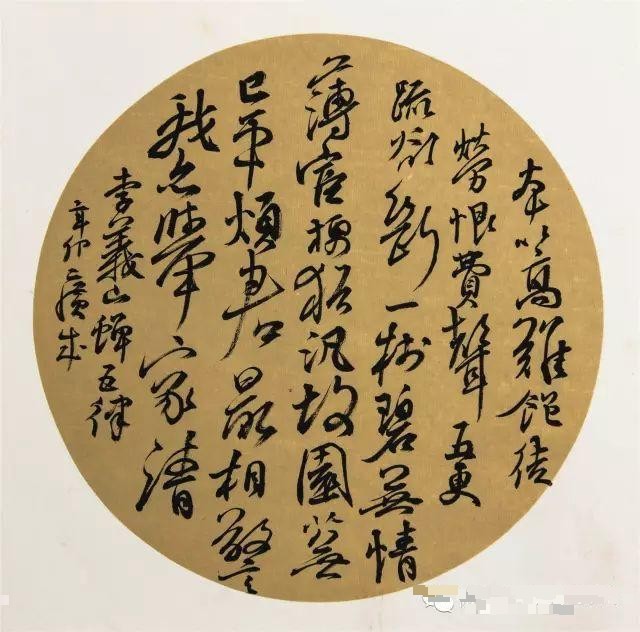 本以高難飽徒
勞恨費聲五更
疏欲斷一樹碧無情
薄宦梗猶汎故園蕪
已平煩君最相警
我亦舉家清
李義山蟬五律
辛卯廣成